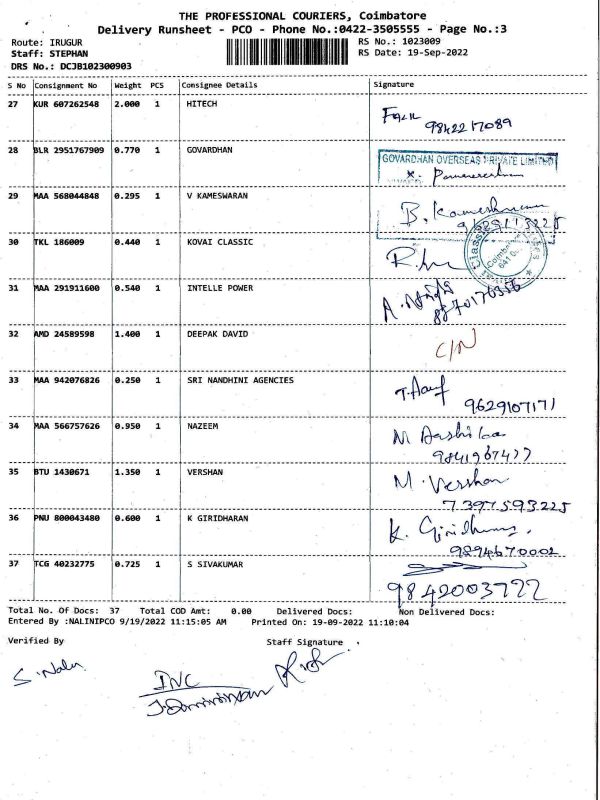 THE PROFESSIONAL COURIERS, Coimbatore
Delivery Runsheet - PCO - Phone No.:0422-3505555 - Page No.:3
Route: IRUGUR RS No.: 1023009
Staff: STEPHAN RS Date: 19-Sep-2022
DRS No.: DCJB102300903
S No Consignment No Weight PCS Consignee Details Signature
27 KUR 607262548 2.000 1 HITECH
9842217089
28 BLR 2951767909 0.770 1 GOVARDHAN GOVARDHAN OVERSEAS PRIVATE LIMITED
29 MAA 568044848 0.295 1 V KAMESWARAN B. Kameshwaran
30 TKL 186009 0.440 1 KOVAI CLASSIC
31 MAA 291911600 0.540 1 INTELLE POWER
8870176356
32 AMD 24589598 1.400 1 DEEPAK DAVID C/N
33 MAA 942076826 0.250 1 SRI NANDHINI AGENCIES
9629107171
34 MAA 566757626 0.950 1 NAZEEM
9841967477
35 BTU 1430671 1.350 1 VERSHAN M. Vershan
7397593225
36 PNU 800043480 0.600 1 K GIRIDHARAN K. Giridharan
9894670002
37 TCG 40232775 0.725 1 S SIVAKUMAR
9842003722
Total No. Of Docs: 37 Total COD Amt: 0.00 Delivered Docs: Non Delivered Docs:
Entered By :NALINIPCO 9/19/2022 11:15:05 AM Printed On: 19-09-2022 11:10:04
Verified By Staff Signature